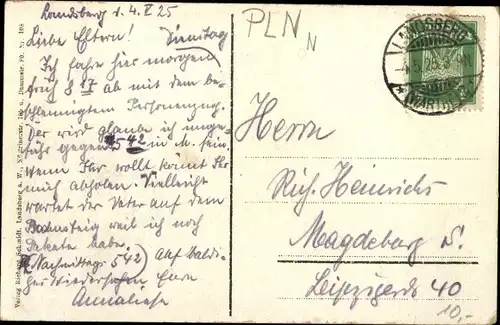 Landsberg d. 4.V 25
Liebe Eltern! Dienstag
Ich fahre hier morgen
früh 8 17 ab mit dem be-
schleunigtem Personenzug.
Der wird glaube ich unge-
fähr gegen 5 42 in M. sein.
Wenn Ihr wollt könnt Ihr
mich abholen. Vielleicht
wartet der Vater auf dem
Bahnsteig weil ich noch
Pakete habe.
(Nachmittags 5 42) Auf baldi-
ges Wiedersehen Eure
Annaliese
PLN
N
LANDSBERG
(WARTHE)
Herrn
Rich. Heinrichs
Magdeburg S.
Leipzigerstr. 40
10,-
Verlag Richard Schmidt, Landsberg a. W.,